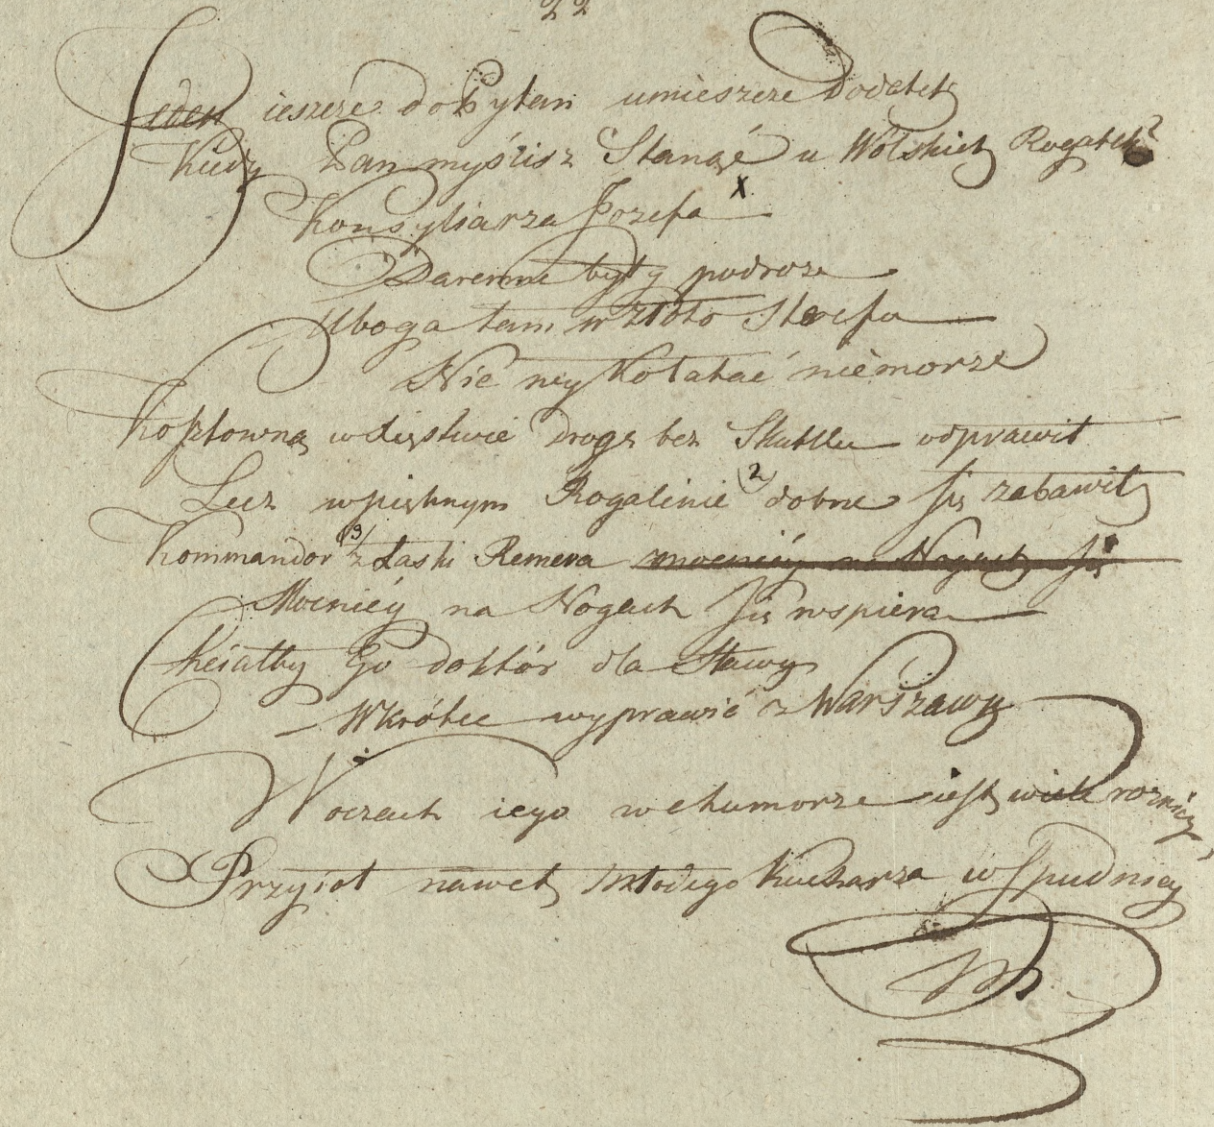 22
Jeden ieszcze do Pytań umieszczę Dodatek
Kiedy Pan myślisz Stanąć u Wólskich Rogatek?
Konsyliarza Jozefa X
Daremne były podroże
Uboga tam w złoto Szefa
Nic wykołatać niemorze
Kosztowną w dięstwie drogę bez Skutku odprawił
Lecz w pięknym Rogalinie (2) dobrze Się zabawił
Kommandor (3) z Łaski Remera mocniéy na Nogach Się
Mocniéy na Nogach Się wspiera
Chciałby Go doktór dla Sławy
Wkrótce wyprawić z Warszawy
W oczach iego w chumorze iest wiele roznicy,
Przyioł nawet młodego Kucharza w Spudnicy